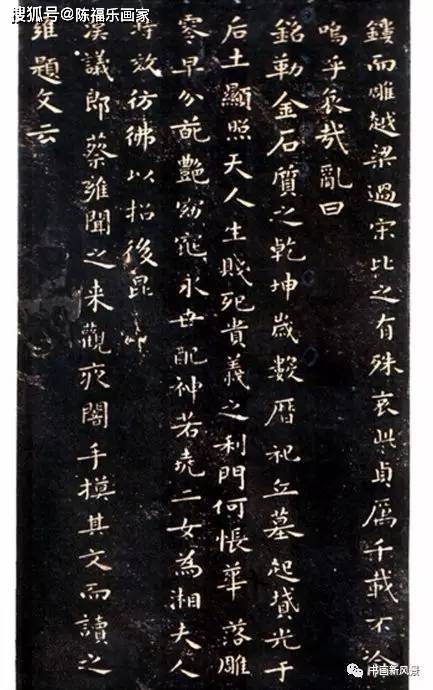 搜狐号@陈福乐画家
鏤而雕越梁過宋比之有殊哀此貞厲千載不渝
嗚乎哀哉亂曰
銘勒金石質之乾坤歲數曆祀丘墓起墳光于
后土顯照天人生賤死貴義之利門何悵華落雕
零早分葩艷窈窕永世配神若堯二女為湘夫人
時效彷彿以招後昆
漢議郎蔡雍聞之來觀夜闇手摸其文而讀之
雍題文云
书画新风景